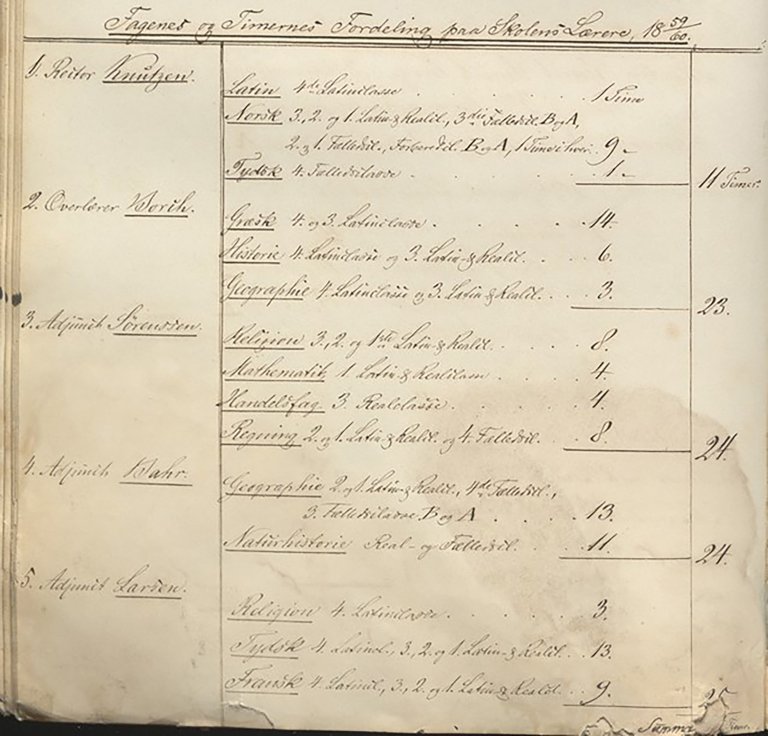 Fagenes og Timernes Fordeling paa Skolens Lærere, 18 59/60.
1. Rector Knutzen.
Latin 4de Latinclasse . . . 1 Time
Norsk 3., 2. og 1. Latin & Realcl., 3die Fællescl. B og A,
2. og 1. Fællescl., Forberedcl. B og A, 1 Time i hver. 9 „
Tydsk 4. Fællesclasse . . . 1 „
11 Timer.
2. Overlærer Borch.
Græsk 4. og 3. Latinclasse . . . 14.
Historie 4. Latinclasse og 3. Latin- & Realcl. . . 6.
Geographie 4. Latinclasse og 3. Latin- & Realcl. . . 3.
23.
3. Adjunct Sørenssen.
Religion 3., 2. og 1ste Latin- & Realcl. . . . 8.
Mathematik 1. Latin- & Realclasse . . . 4.
Handelsfag 3. Realclasse . . . 4.
Regning 2. og 1. Latin- & Realcl. og 4. Fællescl. . . 8.
24.
4. Adjunct Bahr.
Geographie 2. og 1. Latin- & Realcl., 4de Fællescl.,
3. Fællesclasse B og A . . . 13.
Naturhistorie Real- og Fællescl. . . . 11.
24.
5. Adjunct Larsen.
Religion 4. Latinclasse . . . 3.
Tydsk 4. Latincl., 3., 2. og 1. Latin- & Realcl. . . 13.
Fransk 4. Latincl., 3., 2. og 1. Latin & Realcl. . . 9.
25
Summa Timer